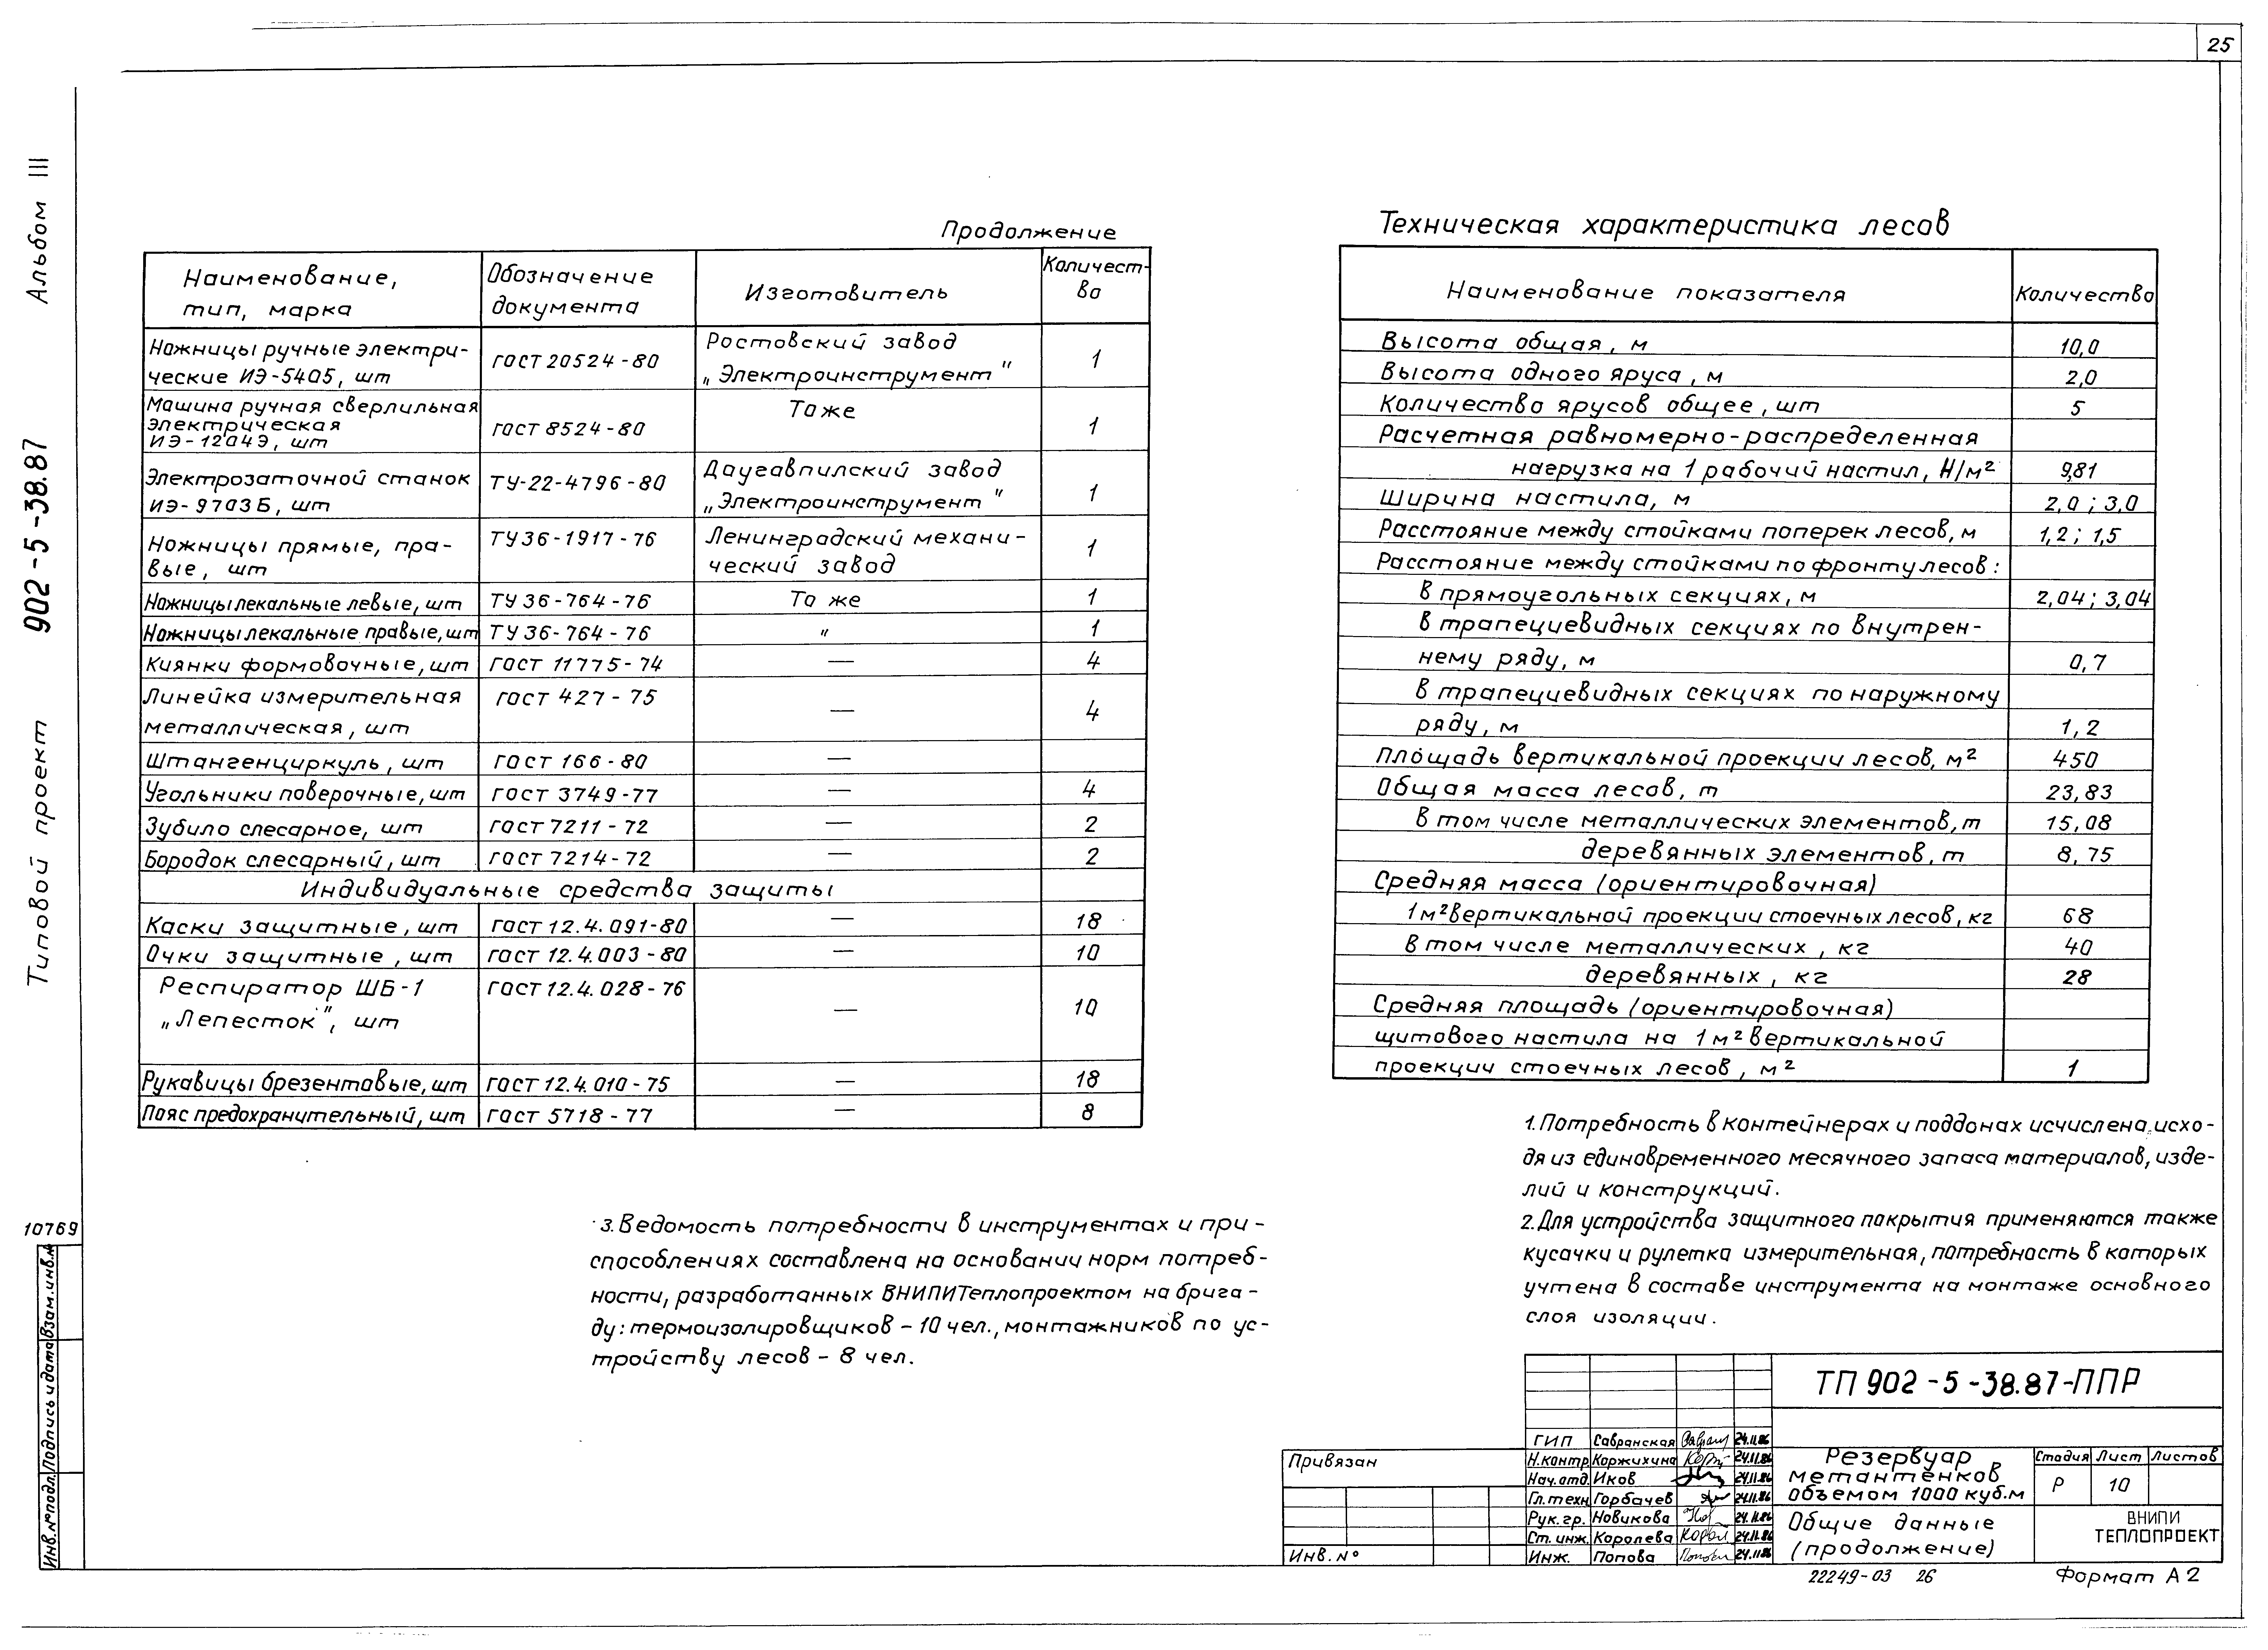 25
Альбом III
902-5-38.87
Типовой проект
10769
Взам.инв.№
Подпись и дата
Инв.№ подл.
Продолжение
Наименование, тип, марка
Обозначение документа
Изготовитель
Количест-во
Ножницы ручные электри-
ческие ИЭ-5405, шт
ГОСТ 20524-80
Ростовский завод
„Электроинструмент"
1
Машина ручная сверлильная
электрическая
ИЭ-1204Э, шт
ГОСТ 8524-80
То же
1
Электрозаточной станок
ИЭ-9703Б, шт
ТУ-22-4796-80
Даугавпилский завод
„Электроинструмент"
1
Ножницы прямые, пра-
вые, шт
ТУ36-1917-76
Ленинградский механи-
ческий завод
1
Ножницы лекальные левые, шт ТУ 36-764-76 То же 1
Ножницы лекальные правые, шт ТУ 36-764-76 " 1
Киянки формовочные, шт ГОСТ 11775-74 — 4
Линейка измерительная
металлическая, шт
ГОСТ 427-75 — 4
Штангенциркуль, шт ГОСТ 166-80 —
Угольники поверочные, шт ГОСТ 3749-77 — 4
Зубило слесарное, шт ГОСТ 7211-72 — 2
Бородок слесарный, шт ГОСТ 7214-72 — 2
Индивидуальные средства защиты
Каски защитные, шт ГОСТ 12.4.091-80 — 18
Очки защитные, шт ГОСТ 12.4.003-80 — 10
Респиратор ШБ-1
„Лепесток", шт
ГОСТ 12.4.028-76 — 10
Рукавицы брезентовые, шт ГОСТ 12.4.010-75 — 18
Пояс предохранительный, шт ГОСТ 5718-77 — 8
3. Ведомость потребности в инструментах и при-
способлениях составлена на основании норм потреб-
ности, разработанных ВНИПИТеплопроектом на брига-
ду: термоизолировщиков - 10 чел., монтажников по ус-
тройству лесов - 8 чел.
Техническая характеристика лесов
Наименование показателя Количество
Высота общая, м 10,0
Высота одного яруса, м 2,0
Количество ярусов общее, шт 5
Расчетная равномерно-распределенная
нагрузка на 1 рабочий настил, Н/м² 9,81
Ширина настила, м 2,0; 3,0
Расстояние между стойками поперек лесов, м 1,2; 1,5
Расстояние между стойками по фронту лесов:
в прямоугольных секциях, м 2,04; 3,04
в трапециевидных секциях по внутрен-
нему ряду, м 0,7
в трапециевидных секциях по наружному
ряду, м 1,2
Площадь вертикальной проекции лесов, м² 450
Общая масса лесов, т 23,83
в том числе металлических элементов, т 15,08
деревянных элементов, т 8,75
Средняя масса (ориентировочная)
1 м² вертикальной проекции стоечных лесов, кг 68
в том числе металлических, кг 40
деревянных, кг 28
Средняя площадь (ориентировочная)
щитового настила на 1 м² вертикальной
проекции стоечных лесов, м² 1
1. Потребность в контейнерах и поддонах исчислена исхо-
дя из единовременного месячного запаса материалов, изде-
лий и конструкций.
2. Для устройства защитного покрытия применяются также
кусачки и рулетка измерительная, потребность в которых
учтена в составе инструмента на монтаже основного
слоя изоляции.
Привязан
Инв. №
ГИП Савранская 24.11.86
Н.контр. Коржихина 24.11.86
Нач.отд. Иков 24.11.86
Гл.техн. Горбачев 24.11.86
Рук.гр. Новикова 24.11.86
Ст.инж. Королева 24.11.86
Инж. Попова 24.11.86
ТП 902-5-38.87-ППР
Резервуар
метантенков
объемом 1000 куб.м
Стадия Лист Листов
Р 10
Общие данные
(продолжение)
ВНИПИ
ТЕПЛОПРОЕКТ
22249-03 26
Формат А2